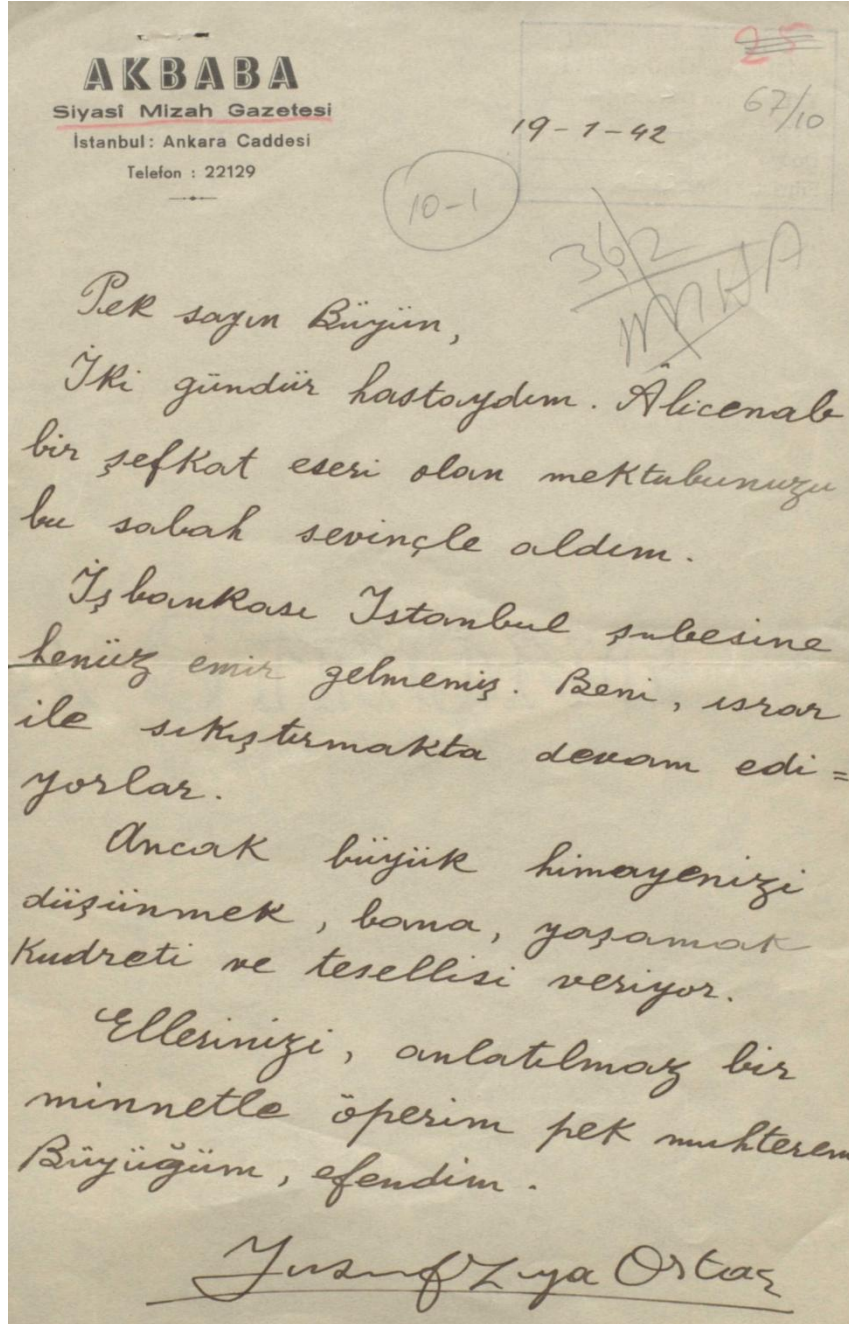 AKBABA
Siyasî Mizah Gazetesi
İstanbul: Ankara Caddesi
Telefon : 22129
25
67/10
19-1-42
10-1
36/2
Pek sayın Büyüğüm,
İki gündür hastaydım. Âlicenab
bir şefkat eseri olan mektubunuzu
bu sabah sevinçle aldım.
İşbankası İstanbul şubesine
henüz emir gelmemiş. Beni, ısrar
ile sıkıştırmakta devam edi=
yorlar.
Ancak büyük himayenizi
düşünmek, bana, yaşamak
kudreti ve tesellisi veriyor.
Ellerinizi, anlatılmaz bir
minnetle öperim pek muhterem
Büyüğüm, efendim.
Yusuf Ziya Ortaç